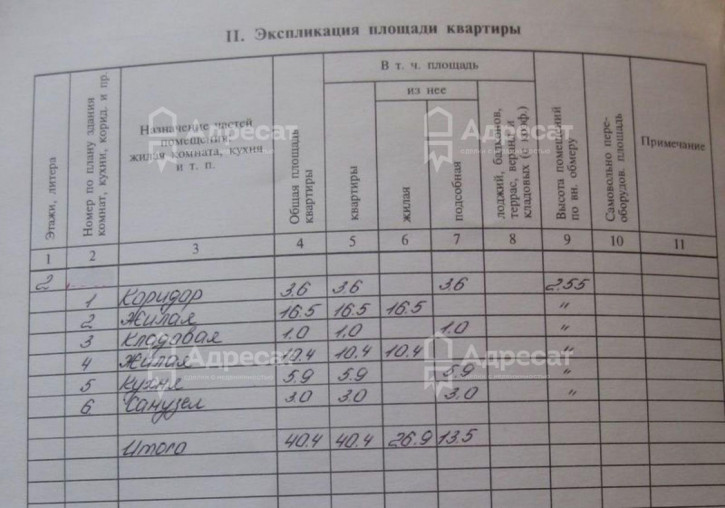 II. Экспликация площади квартиры
Этажи, литера
Номер по плану здания комнат, кухни, корид. и пр.
Назначение частей
помещения:
жилая комната, кухня
и т. п.
Общая площадь
квартиры
В т. ч. площадь
квартиры
из нее
жилая
подсобная
лоджий, балконов,
террас, веранд и
кладовых (с коэф.)
Высота помещений
по вн. обмеру
Самовольно пере-
оборудов. площадь
Примечание
1 2 3 4 5 6 7 8 9 10 11
2
1 Коридор 3.6 3.6 3.6 2.55
2 Жилая 16.5 16.5 16.5 "
3 Кладовая 1.0 1.0 1.0 "
4 Жилая 10.4 10.4 10.4 "
5 Кухня 5.9 5.9 5.9 "
6 Санузел 3.0 3.0 3.0 "
Итого 40.4 40.4 26.9 13.5
Адресат
Адресат
Адресат
Адресат